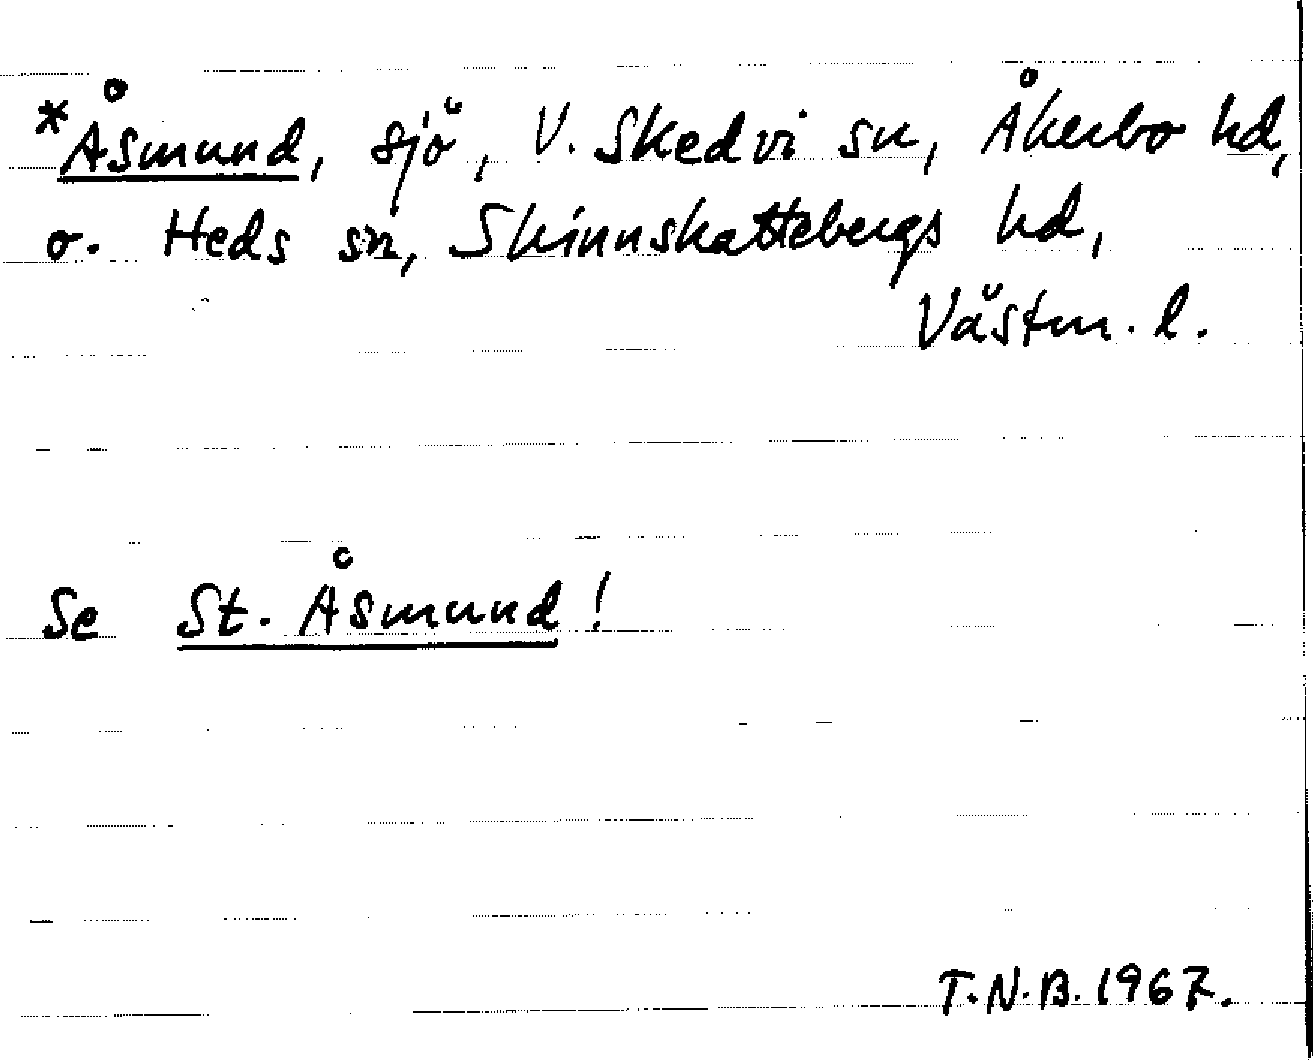 *Åsmund, sjö, V. Skedvi sn, Åkerbo hd,
o. Heds sn, Skinnskattebergs hd,
Västm. l.
Se St. Åsmund!
T.N.B. 1967.